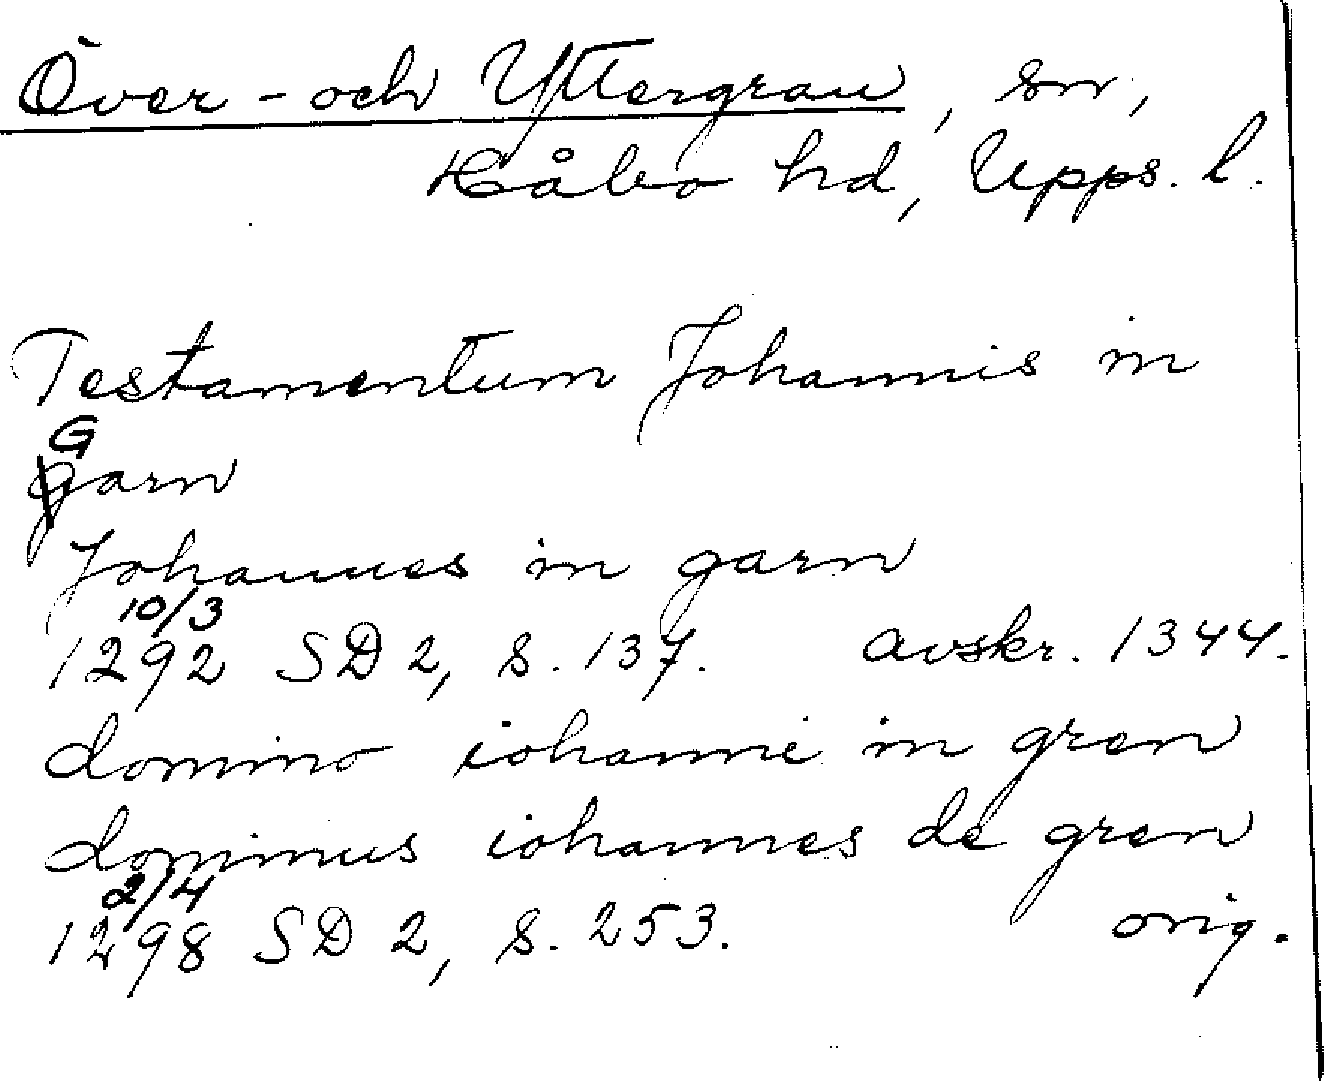 Över- och Yttergran, sn,
Håbo hd, Upps. l.
Testamentum Johannis in
Garn
Johannes in garn
10/3
1292 SD 2, s. 137. avskr. 1344.
domino iohanni in gren
dominus iohannes de gren
2/4
1298 SD 2, s. 253. orig.